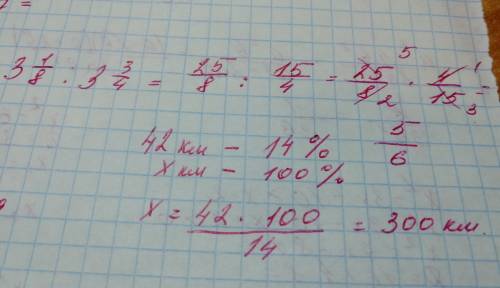 3 1/8 : 3 3/4 = 25/8 : 15/4 = 25/8 · 4/15 =
5 2 1 3
5/6
42 км – 14 %
х км – 100 %
х = 42 · 100 / 14 = 300 км.